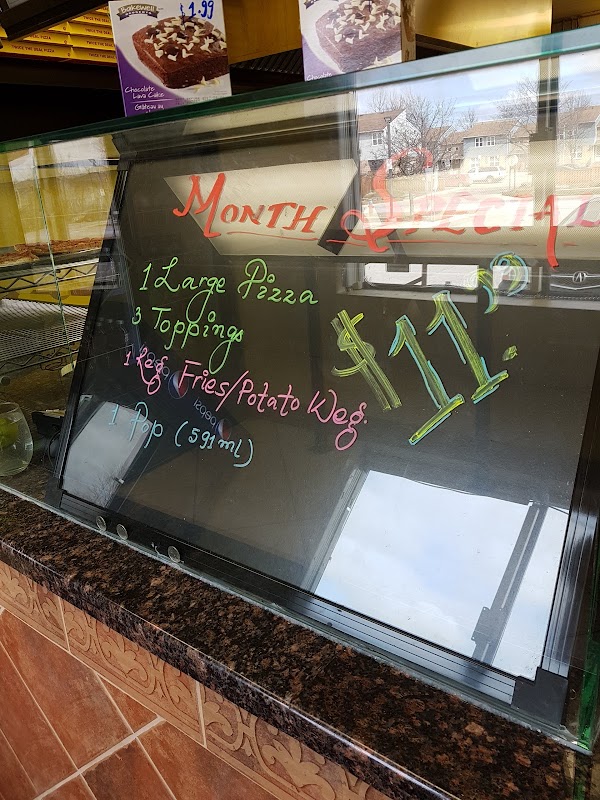 Bakewell
$1.99
Chocolate
Lava Cake
Gâteau au
Bakewell
Chocolate
MONTH SPECIAL
1 Large Pizza
3 Toppings
1 Reg Fries/Potato Weg.
1 Pop (591 ml)
$11.99